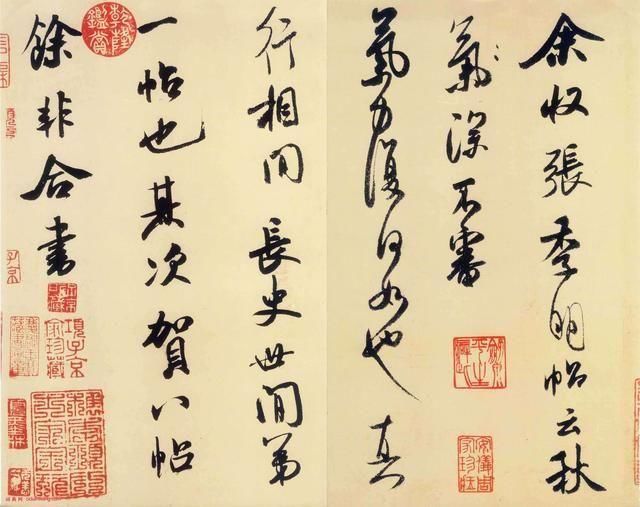 余收張季明帖云秋
氣深不審
氣力復何如也真
行相間長史世間第
一帖也其次賀八帖
餘非合書
乾隆
鑑賞
項子京
家珍藏